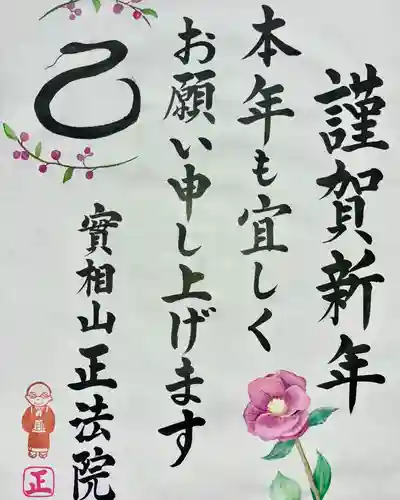 謹賀新年
本年も宜しく
お願い申し上げます
乙
實相山正法院
正